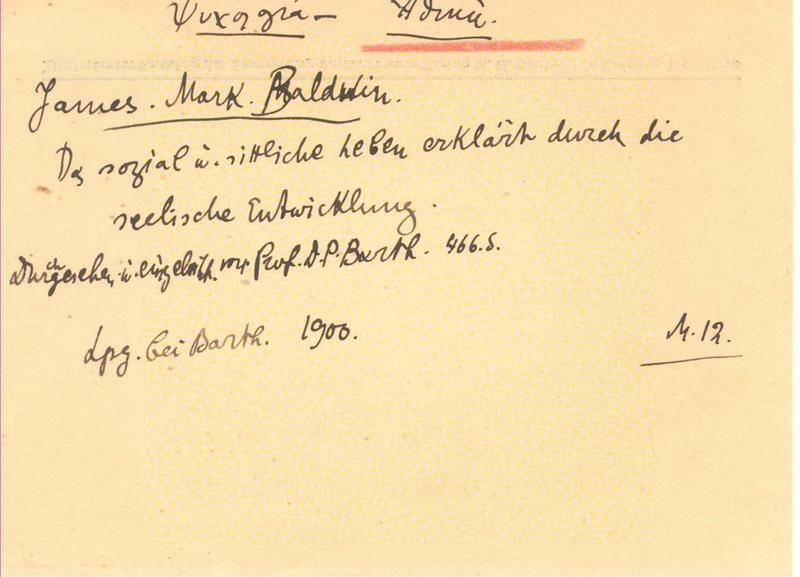 James. Mark. Baldwin.
Das sozial u. sittliche Leben erklärt durch die
seelische Entwicklung.
Durchgesehen u. eingeleit. von Prof. D. P. Barth. 466.S.
Lpzg. bei Barth. 1900.
M.12.